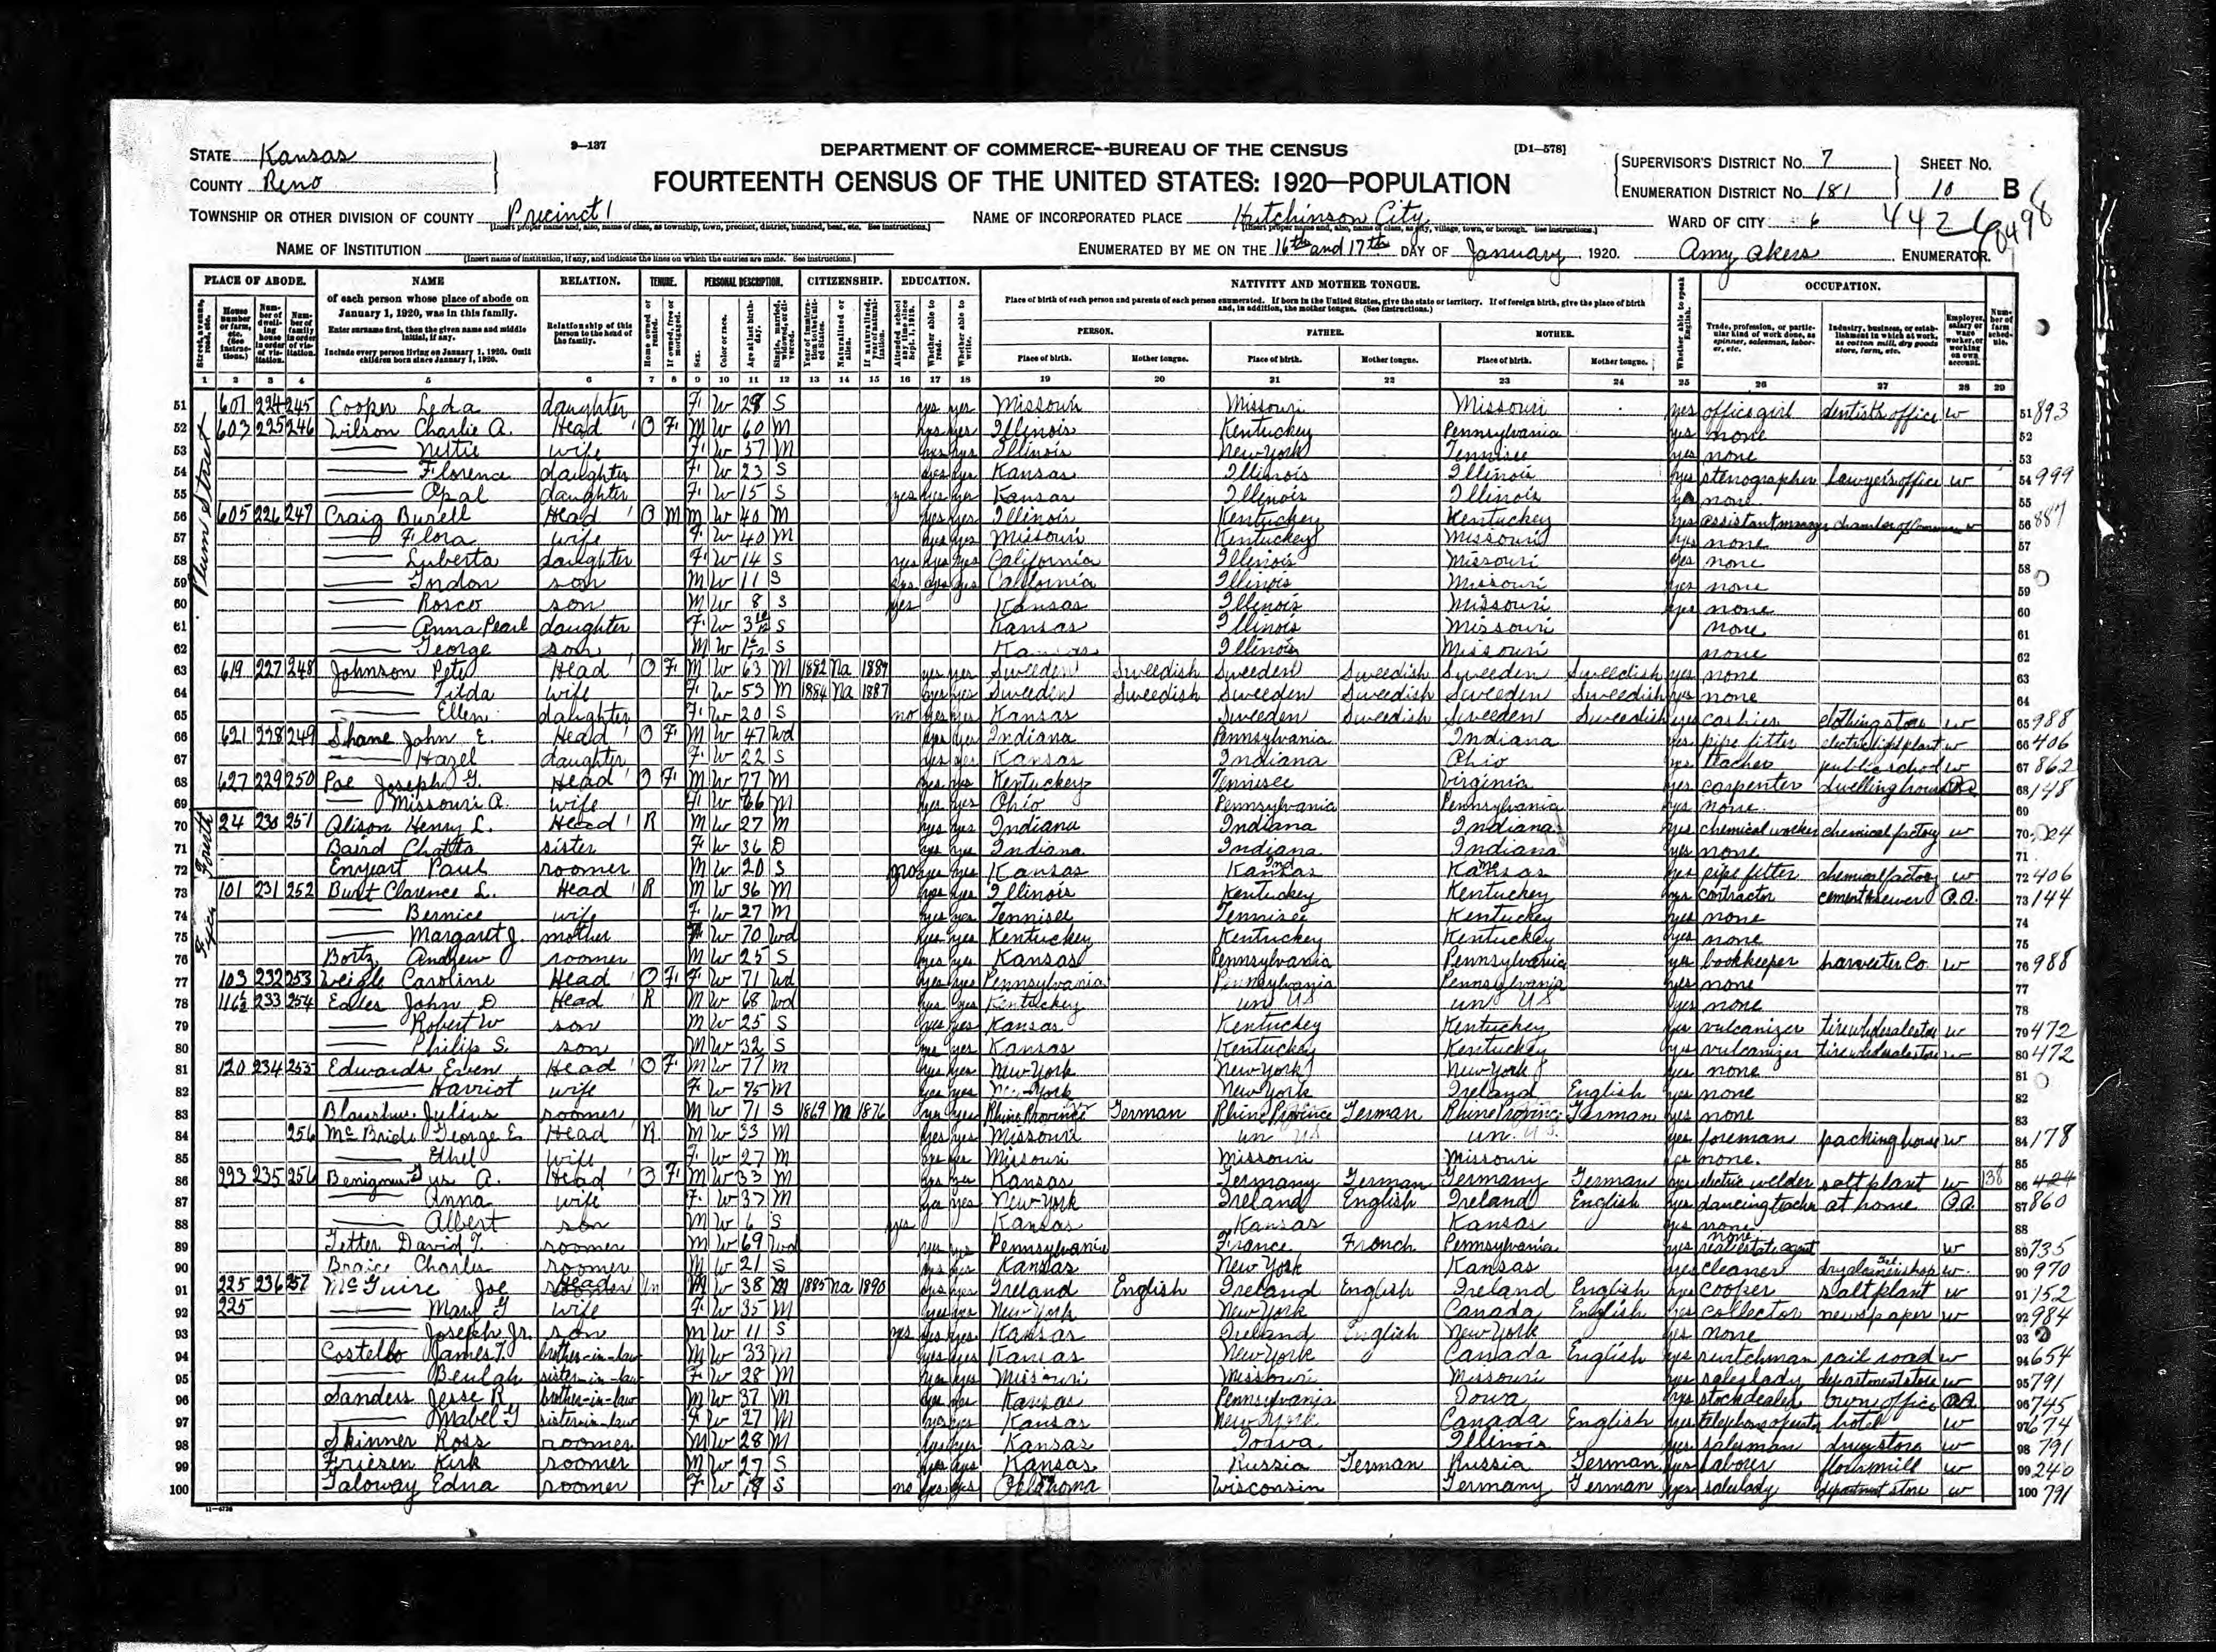 STATE Kansas
COUNTY Reno
9—137
DEPARTMENT OF COMMERCE--BUREAU OF THE CENSUS
[D1—578]
FOURTEENTH CENSUS OF THE UNITED STATES: 1920—POPULATION
SUPERVISOR'S DISTRICT No. 7
ENUMERATION DISTRICT No. 181
SHEET No. 10 B
TOWNSHIP OR OTHER DIVISION OF COUNTY Precinct 1
[Insert proper name and, also, name of class, as township, town, precinct, district, hundred, beat, etc. See instructions.]
NAME OF INCORPORATED PLACE Hutchinson City
[Insert proper name and, also, name of class, as city, village, town, or borough. See instructions.]
WARD OF CITY 6
NAME OF INSTITUTION
[Insert name of institution, if any, and indicate the lines on which the entries are made. See instructions.]
ENUMERATED BY ME ON THE 16th and 17th DAY OF January, 1920. Amy Akers ENUMERATOR.
PLACE OF ABODE. NAME RELATION. TENURE. PERSONAL DESCRIPTION. CITIZENSHIP. EDUCATION. NATIVITY AND MOTHER TONGUE. OCCUPATION.
of each person whose place of abode on January 1, 1920, was in this family.
Enter surname first, then the given name and middle initial, if any.
Include every person living on January 1, 1920. Omit children born since January 1, 1920.
Relationship of this person to the head of the family.
Place of birth of each person and parents of each person enumerated. If born in the United States, give the state or territory. If of foreign birth, give the place of birth and, in addition, the mother tongue. (See instructions.)
PERSON. FATHER. MOTHER.
Place of birth. Mother tongue. Place of birth. Mother tongue. Place of birth. Mother tongue.
1 2 3 4 5 6 7 8 9 10 11 12 13 14 15 16 17 18 19 20 21 22 23 24 25 26 27 28 29
Plum Street
51 601 224 245 Cooper Leda daughter F W 28 S yes yes Missouri Missouri Missouri yes office girl dentists office w 51 893
52 603 225 246 Wilson Charlie A. Head O F M W 60 M yes yes Illinois Kentucky Pennsylvania yes none 52
53 Nettie wife F W 57 M yes yes Illinois New York Tennisee yes none 53
54 Florence daughter F W 23 S yes yes Kansas Illinois Illinois yes stenographer Lawyers office w 54 999
55 Opal daughter F W 15 S yes yes yes Kansas Illinois Illinois yes none 55
56 605 226 247 Craig Burell Head O M M W 40 M yes yes Illinois Kentucky Kentucky yes assistant manager chamber of Commerce w 56 887
57 Flora wife F W 40 M yes yes Missouri Kentucky Missouri yes none 57
58 Luberta daughter F W 14 S yes yes yes California Illinois Missouri yes none 58
59 Gordon son M W 11 S yes yes yes California Illinois Missouri yes none 59
60 Rosco son M W 8 S yes Kansas Illinois Missouri yes none 60
61 Anna Pearl daughter F W S Kansas Illinois Missouri none 61
62 George son M W S Kansas Illinois Missouri none 62
63 619 227 248 Johnson Pete Head O F M W 63 M 1882 Na 1889 yes yes Sweeden Sweedish Sweeden Sweedish Sweeden Sweedish yes none 63
64 Tilda wife F W 53 M 1884 Na 1887 yes yes Sweeden Sweedish Sweeden Sweedish Sweeden Sweedish yes none 64
65 Ellen daughter F W 20 S no yes yes Kansas Sweeden Sweedish Sweeden Sweedish yes cashier clothing store w 65 988
66 621 228 249 Shane John E. Head O F M W 47 wd yes yes Indiana Pennsylvania Indiana yes pipe fitter electric light plant w 66 406
67 Hazel daughter F W 22 S yes yes Kansas Indiana Ohio yes teacher public school w 67 862
68 627 229 250 Poe Joseph G. Head O F M W 77 M yes yes Kentucky Tennisee Virginia yes carpenter dwelling house 68 148
69 Missouri A. wife F W 66 M yes yes Ohio Pennsylvania Pennsylvania yes none 69
70 24 230 251 Alison Henry L. Head R M W 27 M yes yes Indiana Indiana Indiana yes chemical worker chemical factory w 70
71 Baird sister F W 36 D yes yes Indiana Indiana Indiana yes none 71
72 Enyeart Paul roomer M W 20 S no yes yes Kansas Kansas Kansas yes pipe fitter chemical factory w 72 406
73 101 231 252 Burt Clarence L. Head R M W 36 M yes yes Illinois Kentucky Kentucky yes contractor cement & sewer O.A. 73 144
74 Bernice wife F W 27 M yes yes Tennisee Tennisee Kentucky yes none 74
75 Margaret J. mother F W 70 wd yes yes Kentucky Kentucky Kentucky yes none 75
76 Bortz Andrew roomer M W 25 S yes yes Kansas Pennsylvania Pennsylvania yes bookkeeper harvester Co. w 76 988
77 103 232 253 Weigle Caroline Head O F F W 71 wd yes yes Pennsylvania Pennsylvania Pennsylvania yes none 77
78 116½ 233 254 John D Head R M W 68 wd yes yes Kentucky un US un US yes none 78
79 Robert W son M W 25 S yes yes Kansas Kentucky Kentucky yes vulcanizer tire wholesale store w 79 472
80 Philip S. son M W 32 S yes yes Kansas Kentucky Kentucky yes vulcanizer tire wholesale store w 80 472
81 120 234 255 Edwards Head O F M W 77 M yes yes New York New York New York yes none 81
82 Harriot wife F W 75 M yes yes New York New York Ireland English yes none 82
83 Julius roomer M W 71 S 1869 1876 yes yes Rhine Province German Rhine Province German Rhine Province German yes none 83
84 256 McBride George E Head R M W 33 M yes yes Missouri un US un US yes foreman packing house w 84 178
85 Ethel wife F W 27 M yes yes Missouri Missouri Missouri yes none. 85
86 223 235 256 Gus A. Head O F M W 33 M yes yes Kansas Germany German Germany German yes electric welder salt plant w 138 86 424
87 Anna wife F W 37 M yes yes New York Ireland English Ireland English yes dancing teacher at home O.A. 87 860
88 Albert son M W 6 S yes Kansas Kansas Kansas yes none 88
89 David T. roomer M W 69 wd yes yes Pennsylvania France French Pennsylvania yes real estate agent w 89 735
90 Charles roomer M W 21 S yes yes Kansas New York Kansas yes cleaner dry cleaning shop w 90 970
91 225 236 257 McGuire Joe Head M W 38 M 1885 Na 1890 yes yes Ireland English Ireland English Ireland English yes cooper salt plant w 91 152
92 225 Mary G wife F W 35 M yes yes New York New York Canada English yes collector newspaper w 92 984
93 Joseph Jr. son M W 11 S yes yes yes Kansas Ireland English New York yes none 93
94 Costello James T. brother-in-law M W 33 M yes yes Kansas New York Canada English yes switchman rail road w 94 654
95 Beulah sister-in-law F W 28 M yes yes Missouri Missouri Missouri yes saleslady department store w 95 791
96 Sanders Jesse R brother-in-law M W 37 M yes yes Kansas Pennsylvania Iowa yes stockdealer own office O.A. 96 745
97 Mabel G sister-in-law F W 27 M yes yes Kansas New York Canada English yes telephone operator hotel w 97 674
98 Skinner Ross roomer M W 28 M yes yes Kansas Iowa Illinois yes salesman drug store w 98 791
99 Friesen Kirk roomer M W 27 S yes yes Kansas Russia German Russia German yes labour flour mill w 99 240
100 Galoway Edna roomer F W 18 S no yes yes Oklahoma Wisconsin Germany German yes saleslady department store w 100 791
11—6736